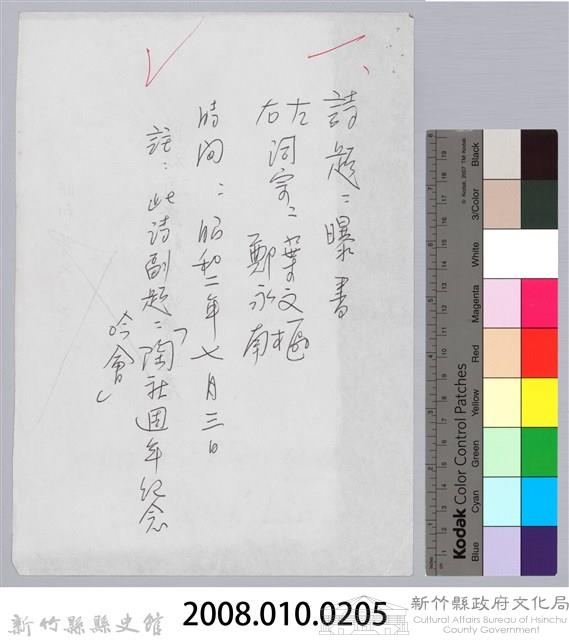 一、
詩題：曝書
左詞宗：葉文樞
右　　　鄭永南
時间：昭和二年七月三日
註：此詩副題：「陶社週年紀念
吟會」
Kodak Color Control Patches
© Kodak, 2007 TM: Kodak
Blue Cyan Green Yellow Red Magenta White 3/Color Black
新竹縣縣史館
2008.010.0205
新竹縣政府文化局
Cultural Affairs Bureau of Hsinchu
County Government